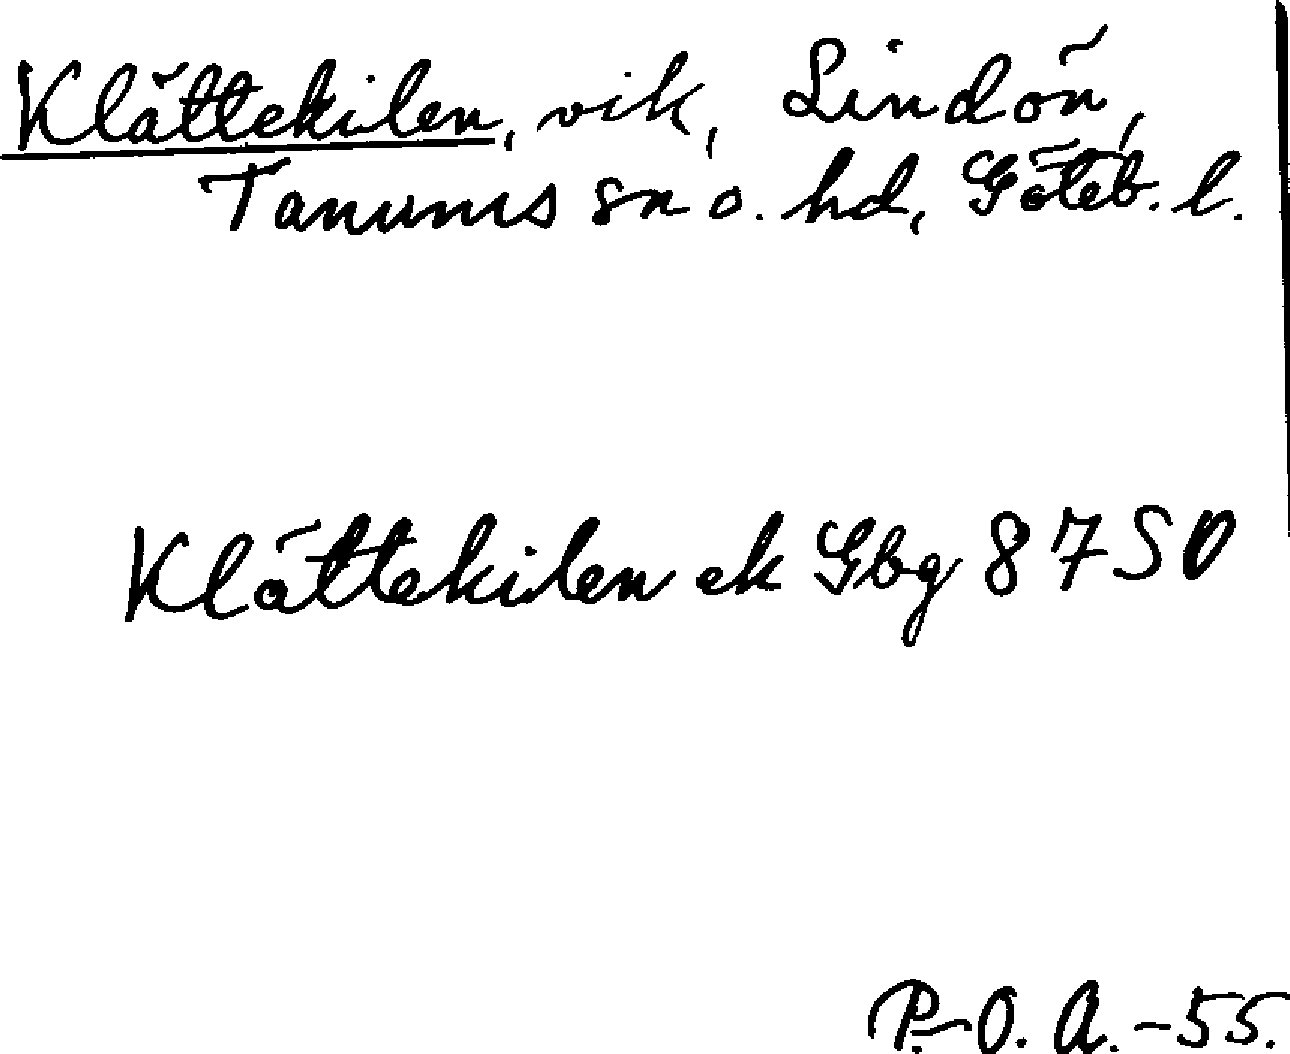 Klättekilen, vik, Lindön,
Tanums sn o. hd, Göteb. l.
Klättekilen ek Gbg 8750
P.-O. A. -55.